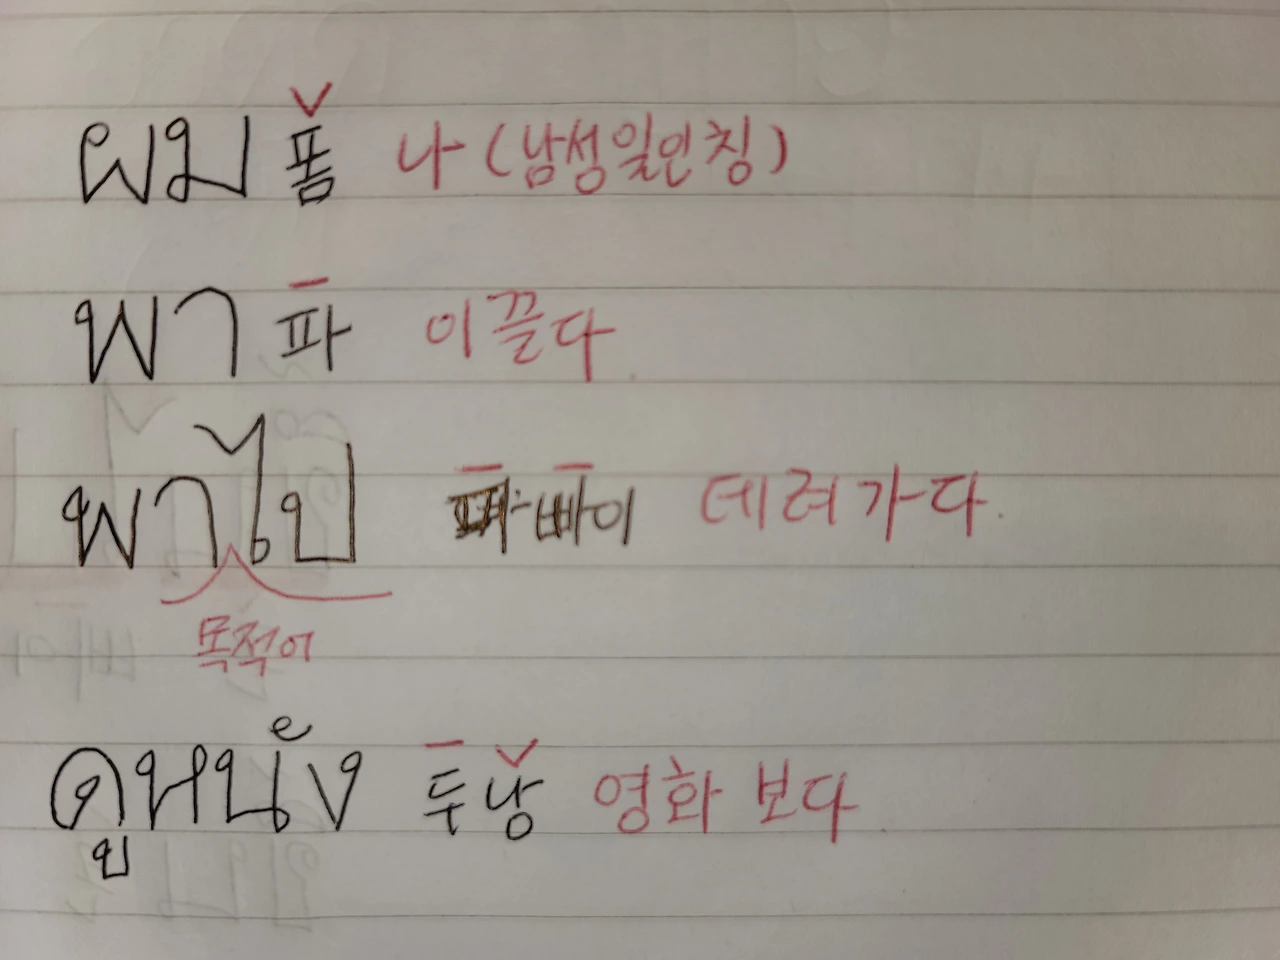 ผม 폼 나 (남성일인칭)
พา 파 이끌다
พาไป 파빠이 데려가다
목적어
ดูหนัง 두낭 영화 보다